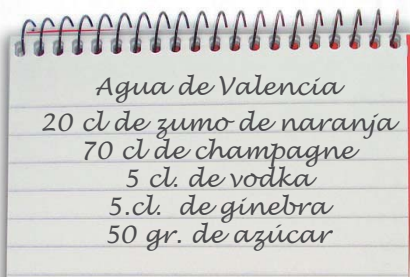 Agua de Valencia
20 cl de zumo de naranja
70 cl de champagne
5 cl. de vodka
5.cl. de ginebra
50 gr. de azúcar